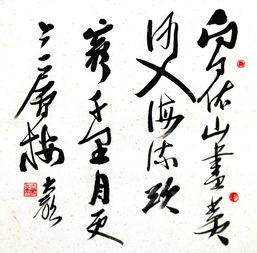 白日依山盡黄
河入海流欲
窮千里目更
上一層樓